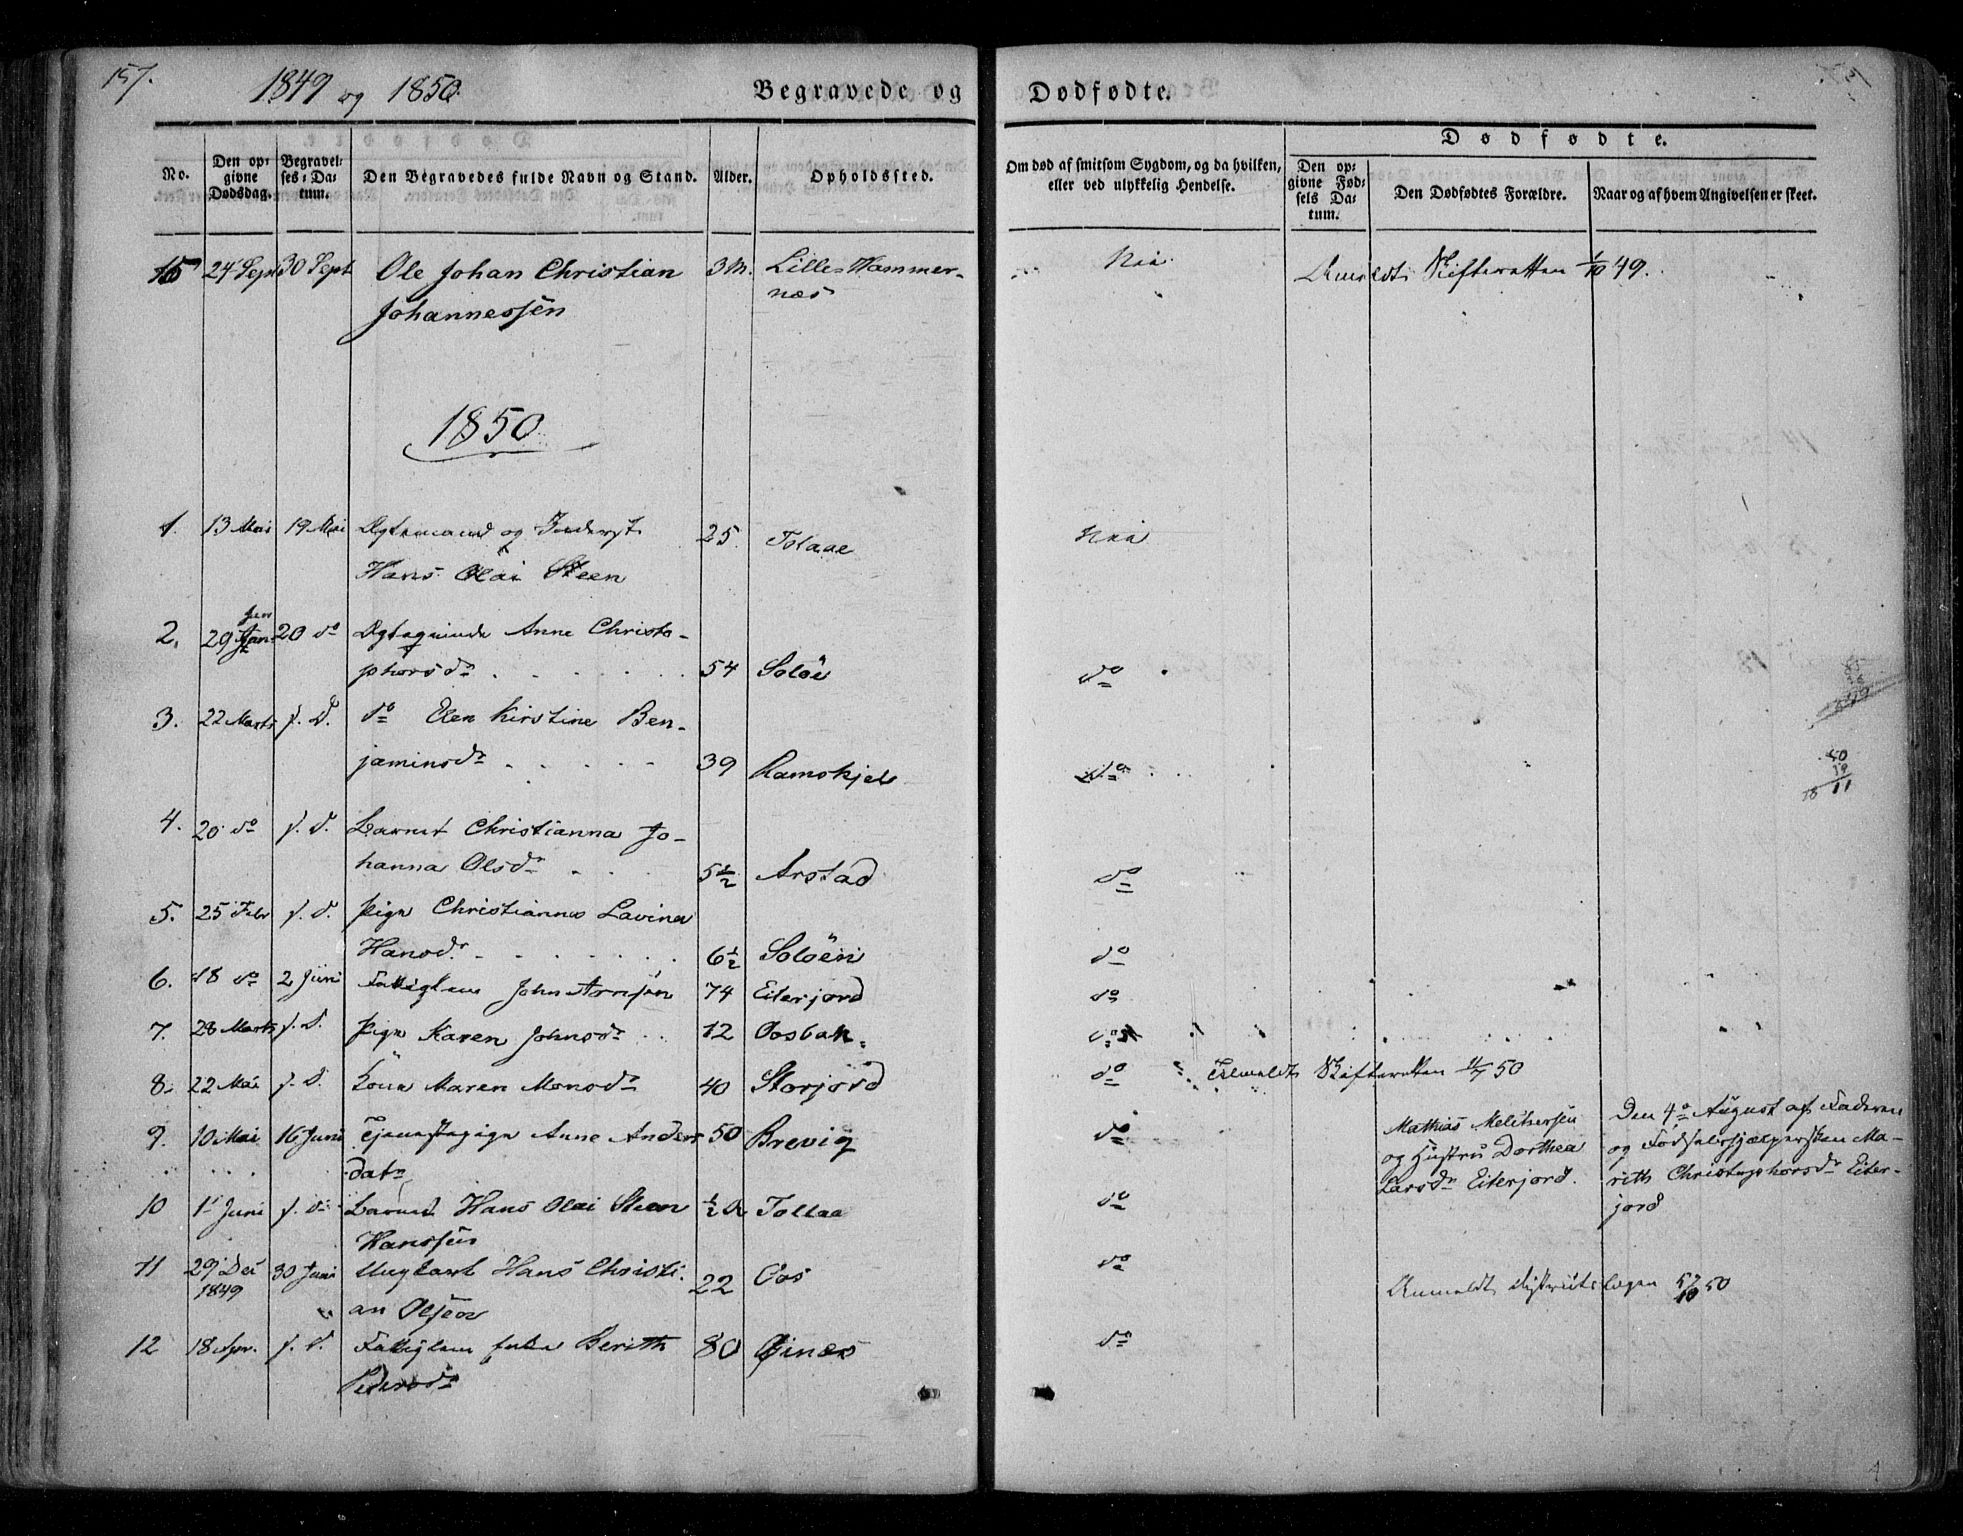 157.
1849 og 1850
Begravede og
Dødfødte.
No.
Den op-
givne
Dødsdag.
Begravel-
ses-Da-
tum.
Den Begravedes fulde Navn og Stand.
Alder.
Opholdssted.
Om død af smitsom Sygdom, og da hvilken,
eller ved ulykkelig Hendelse.
Dødfødte.
Den op-
givne Fød-
sels Da-
tum.
Den Dødfødtes Forældre.
Naar og af hvem Angivelsen er skeet.
15 24 Sept 30 Sept Ole Johan Christian 3 M. Lille-Hammer- Nei Anmeldt Skifteretten 1/10 49.
Johannessen næs
1850
1. 13 Mai 19 Mai Ægtemand og Inderst 25. Tolaae Nei
Hans Olai Steen
2. 29 Jan 20 do Ægteqvinde Anne Christo-
phorsdr 54 Soløe do
3. 22 Marts s. D. do Elen Kirstine Ben-
jaminsdr 39 Ramskjel do
50
19
18 11
4. 20 do s. d. Barnet Christianna Jo-
hanna Olsdr 5 1/2 Arstad do
5. 25 Febr s. d. Pige Christianna Lavina
Hansdr 6 1/2 Soløen do
6. 18 do 2 Juni Fattiglem John Arnsen 74 Eiterjord do
7. 28 Marts s. D. Pige Karen Johnsdr 12 Oosbak do
8. 22 Mai s. D. Kone Maren Monsdr 40 Storjord do Anmeldt Skifteretten 50
9. 10 Mai 16 Juni Tjenestepige Anne Anders 50 Brevig do
datr
Mathias Melthersen
og Hustru Dorthea
Larsdr Eiterjord.
Den 4de August af Faderen
og Fødselshjælpersken Ma-
rith Christophorsdr Eiter-
jord
10 1 Juni s. d. Barnet Hans Olai Steen 1/2 Tollaa do
Hanssen
11 29 Dec 30 Juni Ungkarl Hans Christi- 22 Oos do
1849 an Olsen
Anmeldt Distriktslægen 50
12 18 Apr. s. d. Fattiglem Enke Berith 80 Øinæs do
Pedersdr